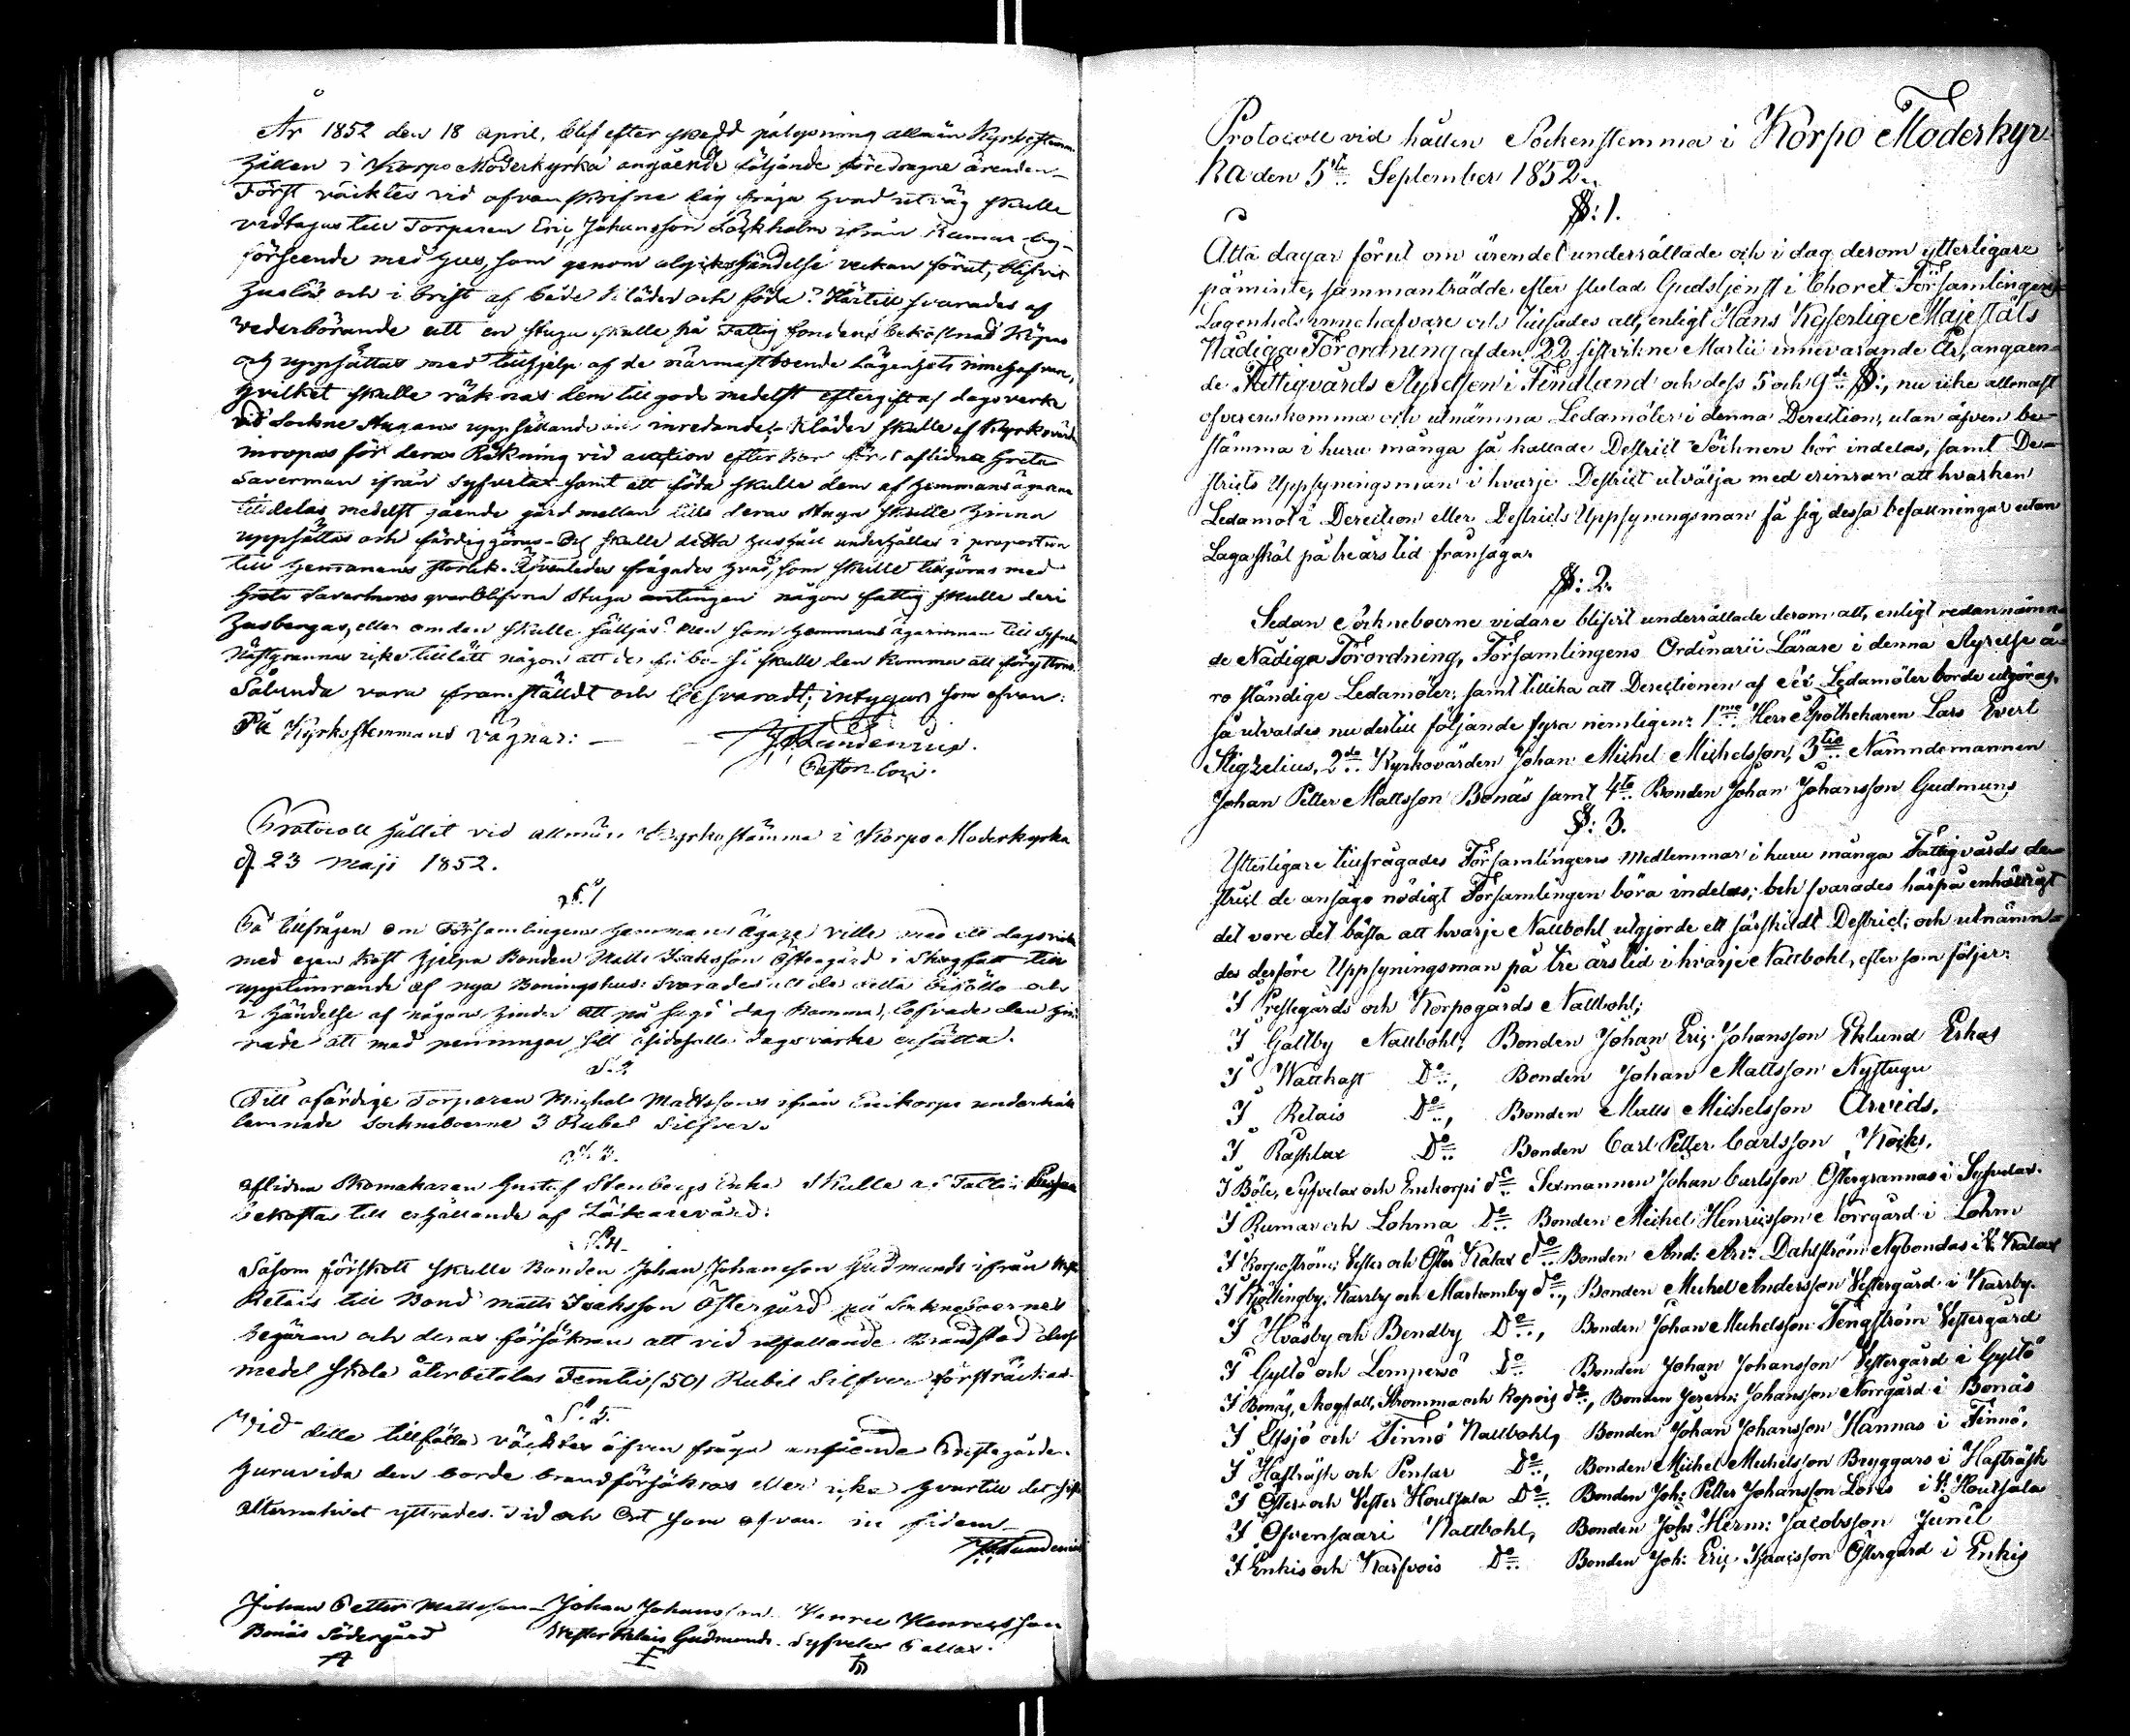 År 1852 den 18 April, blef efter skedd pålysning allmän Kyrkostemma
hållen i Korpo Moderkyrka angående följande föredragne ärenden_
Först väcktes vid ofvanskrifne dag fråga hvad utväg skulle
vidtagas till Torparen Eric Johansson Löfkholm ifrån Rumar by_
förseende med hus, som genom olyckshändelse veckan förut, blifvit
huslös och i brist af både kläder och föda? Härtill svarades af
vederbörande att en stuga skulle på Fattig fondens bekostnad köpas
och uppsättas med tillhjelp af de närmast boende Lägenhets innehafvare,
hvilket skulle räknas dem till godo medelst eftergift af dagsverke
vid Sockne Stugans uppsättande och inredande, Kläder skulle af Kyrkovärden
inropas för deras Räkning vid auction efter aflidna Greta
Saverman ifrån Syfvelax samt att föda skulle dem af hemmansägarena
tilldelas medelst gående gård mellan tills deras Stuga skulle hinna
uppsättas och färdiggöras_ skulle detta hushåll underhållas i proportion
till hemanens storlek. Äfvenledes frågades hvad, som skulle tillgöras med
Greta Savermans qvarblifvna Stuga antingen någon fattig skulle deri
husbergas, eller om den skulle säljas? Men som hemmans ägarinnan till Syfvelax
Nästgrannas icke tillätt någon att der få bo så skulle den komma att föryttras.
Sålunda vara framstäldt och besvaradt; intygar som ofvan:
På Kyrkostemmans vägnar: _
Pastor loci.
Protocoll hållit vid allmän Kyrkostämma i Korpo Moderkyrka
d. 23 Maji 1852.
§. 1
På tillfrågan om Församlingens hemmans Ägare ville med ett dagsverke
med egen kost hjelpa Bonden Matts Isaksson Östergård i Skogfatt till
upptimrande af nya Boningshus: Svarades att de detta bifölle och
i händelse af någons hinder att på sagd dag komma, lofvade den hin-
rade att med penningar sitt åsidosatta dagsverke ersätta.
§. 2
Till ofärdige Torparen Michel Mattssons ifrån Enikorpi underhåll
lemnade Sockneboerne 3 Rubel Silfver.
§. 3.
Aflidna Skomakaren Gustaf Stenbergs Enka skulle af Fattig
bekostas till erhållande af Läkarevård.
§. 4.
Såsom förskott skulle Bonden Johan Johansson Gudmunds ifrån
Retais till Bond Matts Isaksson Östergård på Socknebornes
begäran och deras försäkran att vid utfallande Brandstod dess
medel skola återbetalas Femtio (50) Rubel Silfver försträckas
§. 5.
Vid detta tillfälle väcktes äfven fråga angående Prestegården
huruvida den borde brandförsäkras eller icke hvartill det sista
alternativet yttrades. Tid och Ort som ofvan in fidem_
Johan Petter Mattsson_ Johan Johansson. Henric Henricsson
Bonäs Södergård Wester Retais Gudmunds. Syfvelax
Protocoll vid hållen Sockenstemma i Korpo Moderkyr-
ka den 5te September 1852.
§: 1.
Åtta dagar förut om ärendet underrättade och i dag derom ytterligare
påminte, sammanträdde efter slutad Gudstjenst i Choret Församlingens
Lägenhets innehafvare och tillsades att, enligt Hans Kejserlige Majestäts
Nådiga Förordning af den 22 sistvikne Martii innevarande År, angåen-
de Fattigvårds Styrelsen i Findland och dess 5 och 9de §:, nu icke allenast
öfverenskomma och utnämna Ledamöter i denna Direction, utan äfven be-
stämma i huru många så kallade District Söcknen bör indelas, samt De-
stricts Uppsyningsman i hvarje Destrict utvälja med erinran att hvarken
Ledamot i Derection eller Destricts Uppsyningsman få sig dessa befattningar utan
Laga skäl på tre års tid frånsäga.
§: 2.
Sedan Socknebоerne vidare blifvit underrättade derom att, enligt redan nämn-
de Nådiga Förordning, Församlingens Ordinarii Lärare i denna Styrelse ä-
ro ständige Ledamöter, samt tillika att Directionen af sex Ledamöter borde utgöras,
så utvaldes nu dertill följande fyra nemligen: 1mo Herr Apothekaren Lars Evert
Stigzelius, 2do Kyrkovärden Johan Michel Michelsson, 3tio Nämndemannen
Johan Petter Mattsson Bonäs samt 4to Bonden Johan Johansson Gudmuns
§: 3.
Ytterligare tillfrågades Församlingens Medlemmar i huru många Fattigvårds de-
strict de ansågo nödigt Församlingen böra indelas; och svarades härpå enhälligt
det vore det bästa att hvarje Nattbohl utgjorde ett särskildt Destrict; och utnämn-
des derföre Uppsyningsman på tre års tid i hvarje Nattbohl, efter som följer:
I Prestegårds och Korpogårds Nattbohl;
I Galtby Nattbohl; Bonden Johan Eric Johansson Eklund Erkas
I Watthast Do, Bonden Johan Mattsson Nystugu
I Retais Do, Bonden Matts Michelsson Arvids,
I Rashlax Do Bonden Carl Petter Carlsson Kocks,
I Böle, Syfvelax och Enikorpi do Sexmannen Johan Carlsson Östergrannas i Syfvelax.
I Rumar och Lohma Do Bonden Michel Henricsson Norrgård i Lohm
I Korpoström: Vester och Öster Kalax do Bonden And: Arv: Dahlström Nybondas i V: Kalax
I Kjöllingby. Karrby och Markomby do, Bonden Michel Andersson Vestergård i Karrby.
I Hväsby och Bendby Do, Bonden Johan Michelsson Tengström Vestergård
I Gyltö och Lempersö Do Bonden Johan Johansson Vestergård i Gyltö
I Bonäs, Skogfatt, Strömma och Kopois do, Bonden Jerem: Johansson Norrgård i Bonäs
I Elfsjö och Finnö Nattbohl, Bonden Johan Johansson Hannas i Finnö,
I Hafträsk och Pensar Do, Bonden Michel Michelsson Bryggars i Hafträsk
I Öster och Vester Houtsala Do Bonden Joh: Petter Johansson Lovis i V: Houtsala
I Ofvensaari Nattbohl, Bonden Joh: Herm: Jacobsson Junil
I Enkis och Karfvois Do Bonden Joh: Eric Isaacsson Östergård i Enkis